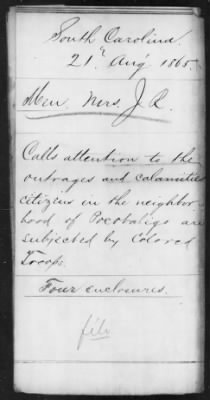 South Carolina
21st Aug 1865.
Mew Mrs. J. R.
Calls attention to the
outrages and calamities
citizens in the neighbor-
hood of Pocotaligo are
subjected by Colored
Troops.
Four enclosures.
file